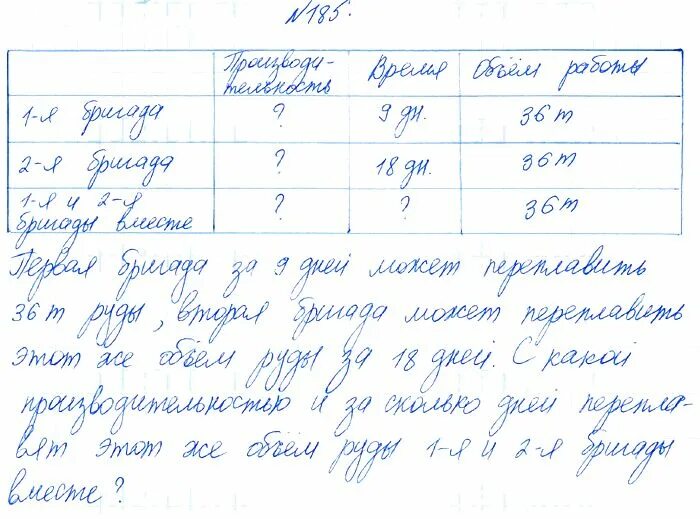 №185.
Производи- Время Объём работы
тельность
1-я бригада ? 9 дн. 36 т
2-я бригада ? 18 дн. 36 т
1-я и 2-я
бригады вместе ? ? 36 т
Первая бригада за 9 дней может переплавить
36 т руды, вторая бригада может переплавить
этот же объём руды за 18 дней. С какой
производительностью и за сколько дней перепла-
вят этот же объём руды 1-я и 2-я бригады
вместе?